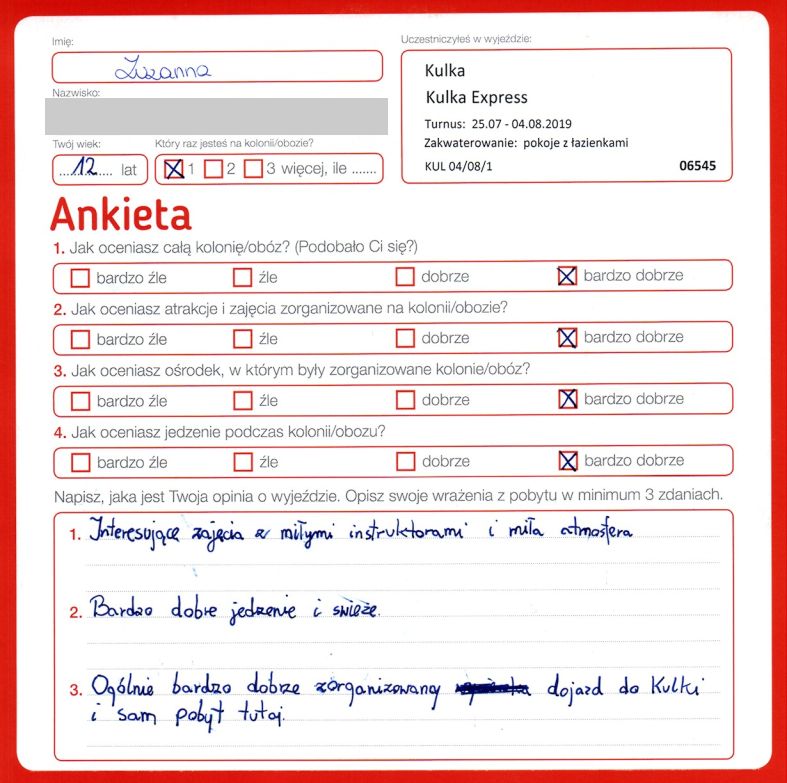 Imię:
Zuzanna
Nazwisko:
Twój wiek:
12 lat
Który raz jesteś na kolonii/obozie?
1 2 3 więcej, ile .......
Uczestniczyłeś w wyjeździe:
Kulka
Kulka Express
Turnus: 25.07 - 04.08.2019
Zakwaterowanie: pokoje z łazienkami
KUL 04/08/1 06545
Ankieta
1. Jak oceniasz całą kolonię/obóz? (Podobało Ci się?)
bardzo źle źle dobrze bardzo dobrze
2. Jak oceniasz atrakcje i zajęcia zorganizowane na kolonii/obozie?
bardzo źle źle dobrze bardzo dobrze
3. Jak oceniasz ośrodek, w którym były zorganizowane kolonie/obóz?
bardzo źle źle dobrze bardzo dobrze
4. Jak oceniasz jedzenie podczas kolonii/obozu?
bardzo źle źle dobrze bardzo dobrze
Napisz, jaka jest Twoja opinia o wyjeździe. Opisz swoje wrażenia z pobytu w minimum 3 zdaniach.
1. Interesujące zajęcia z miłymi instruktorami i miła atmosfera
2. Bardzo dobre jedzenie i świeże.
3. Ogólnie bardzo dobrze zorganizowany dojazd do Kulki
i sam pobyt tutaj.